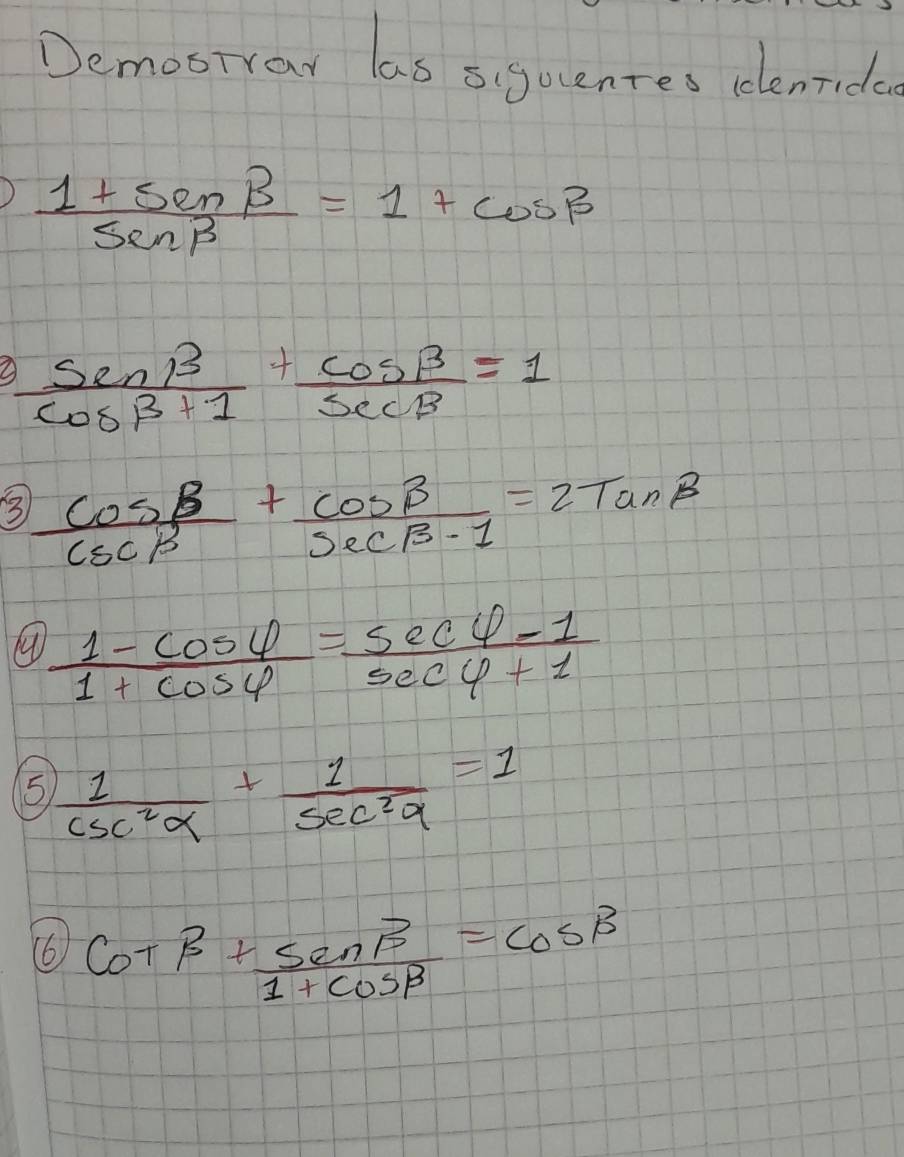 Demostrar las siguientes identidad
1 + sen β / sen β = 1 + cos β
② sen β / cos β + 1 + cos β / sec β = 1
③ cos β / csc β + cos β / sec β - 1 = 2 Tan β
④ 1 - cos φ / 1 + cos φ = sec φ - 1 / sec φ + 1
⑤ 1 / csc² α + 1 / sec² α = 1
⑥ Cot β + sen β / 1 + cos β = cos β